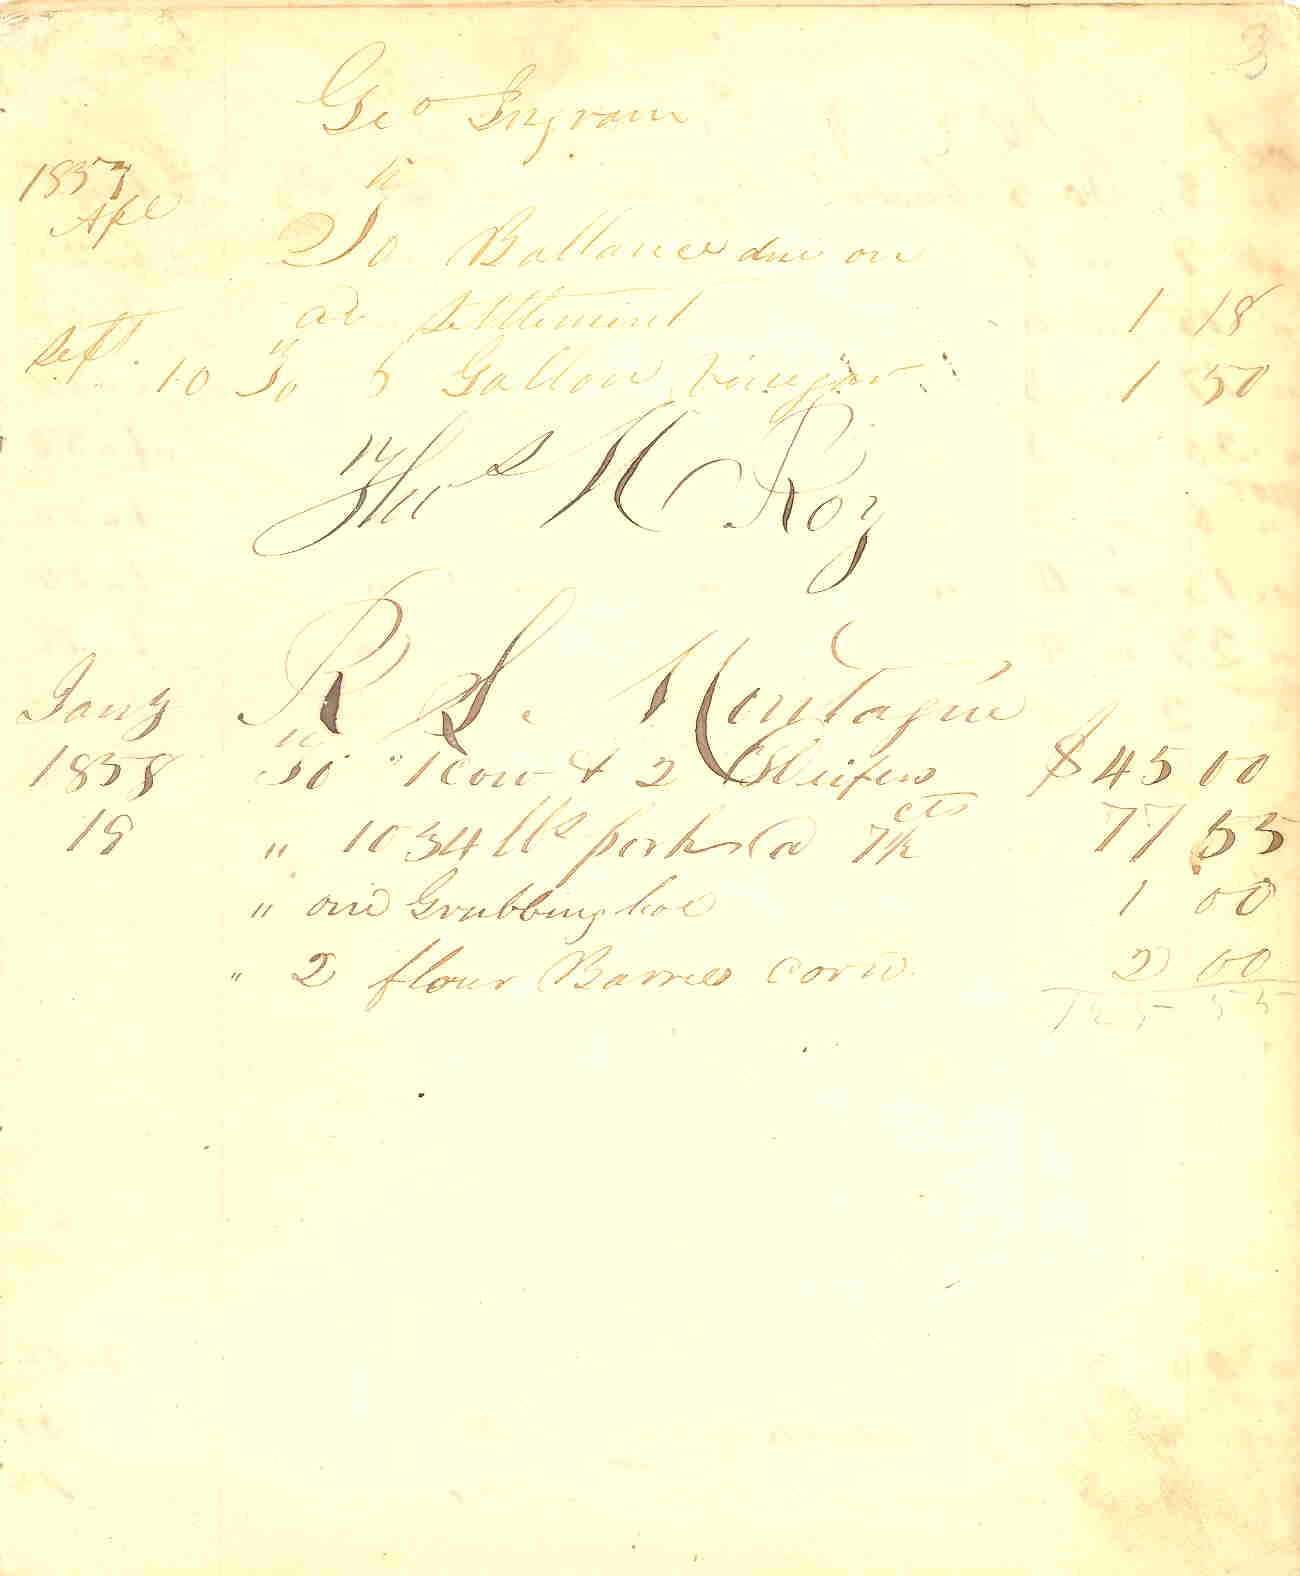 3
Geo Ingram
1857
Apl
To Ballance due on
ac settlement 1 18
Sept. 10 To 6 Gallons Vinegar 1 50
Thos M Roy
R S. Montague
Jany
1858 To 1 Cow & 2 Heifers $ 45 00
19 " 1034 lbs pork @ 7½ cts 77 55
" one Grubbing hoe 1 00
" 2 flour Barrels corn 2 00
125 55